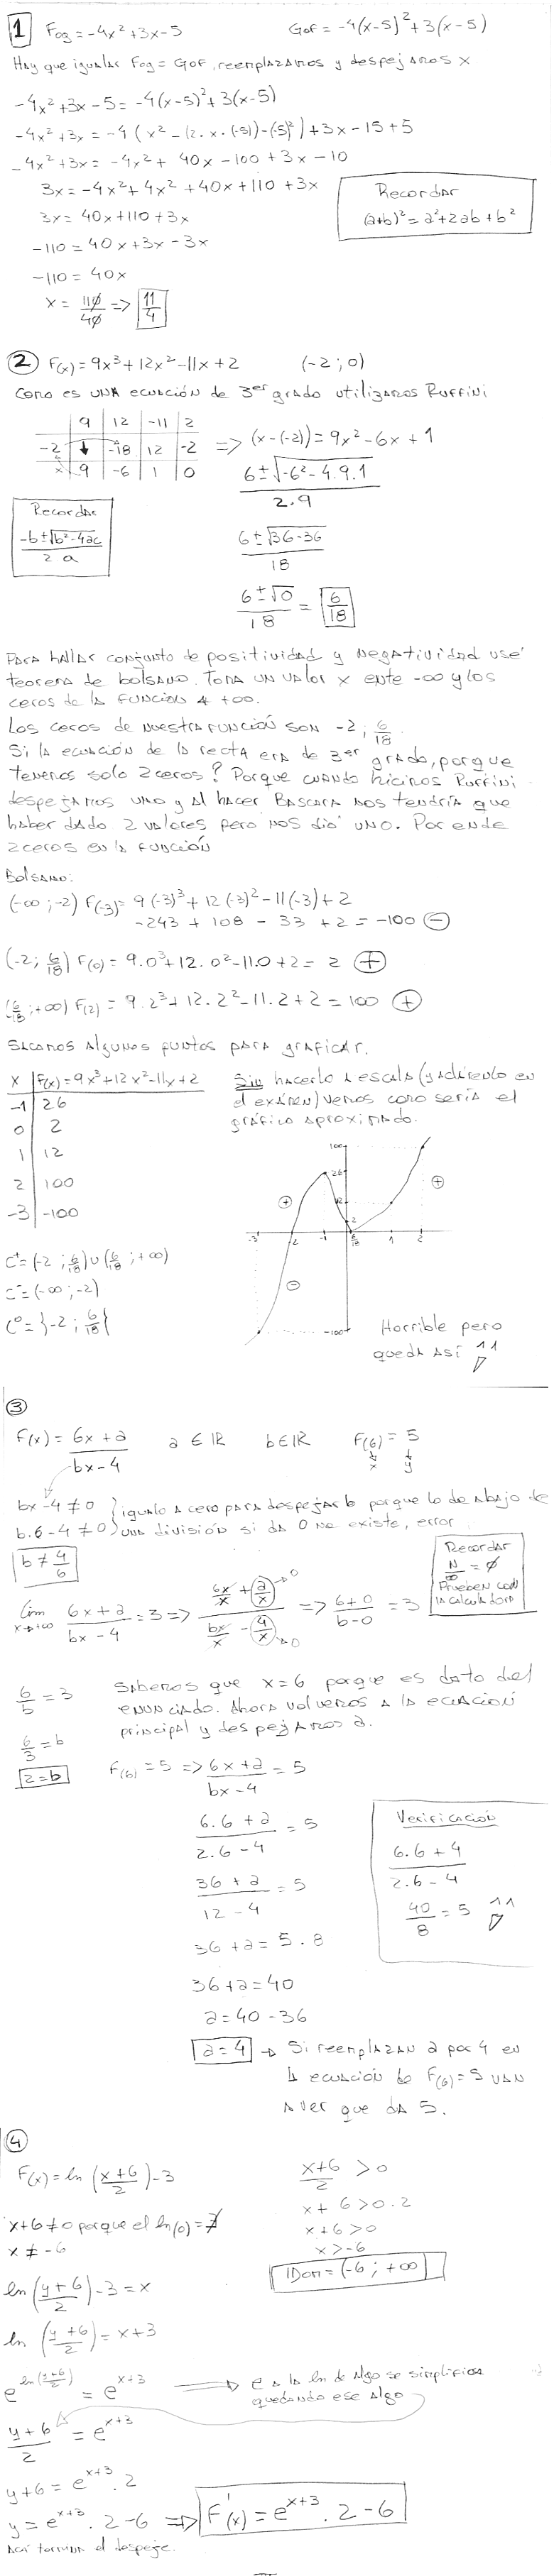 1 Fog = -4x²+3x-5 GoF = -4(x-5)²+3(x-5)
Hay que igualar Fog = GoF, reemplazamos y despejamos x
-4x²+3x-5 = -4(x-5)²+3(x-5)
-4x²+3x = -4(x²-(2.x.(-5))-(-5)²)+3x-15+5
-4x²+3x = -4x²+ 40x-100+3x-10
3x = -4x²+4x²+40x+110+3x
3x = 40x+110+3x
-110 = 40x+3x-3x
-110 = 40x
x = 110/40 => 11/4
Recordar
(a+b)² = a²+2ab+b²
2 F(x) = 9x³+12x²-11x+2 (-2;0)
Como es una ecuación de 3er grado utilizamos Ruffini
9 | 12 | -11 | 2
-2 | ↓ | -18 | 12 | -2
x | 9 | -6 | 1 | 0
=> (x-(-2)) = 9x²-6x+1
6±√-6²-4.9.1 / 2.9
6±√36-36 / 18
6±√0 / 18 = 6/18
Recordar
-b±√b²-4ac / 2a
Para hallar conjunto de positividad y negatividad use
teorema de bolsano. Toma un valor x ente -∞ y los
ceros de la función a +∞.
Los ceros de nuestra función son -2; 6/18
Si la ecuación de la recta era de 3er grado, porque
tenemos solo 2 ceros? Porque cuando hicimos Ruffini
despejamos uno y al hacer Bascara nos tendría que
haber dado 2 valores pero nos dio uno. Por ende
2 ceros en la función
Bolsano:
(-∞;-2) F(-3) = 9(-3)³+12(-3)²-11(-3)+2
-243 + 108 - 33 + 2 = -100 ⊖
(-2; 6/18) F(0) = 9.0³+12.0²-11.0+2 = 2 ⊕
(6/18;+∞) F(2) = 9.2³+12.2²-11.2+2 = 100 ⊕
Sacamos algunos puntos para graficar.
x | F(x) = 9x³+12x²-11x+2
-1 | 26
0 | 2
1 | 12
2 | 100
-3 | -100
Sin hacerlo a escala (y adicionlo en
el exámen) vemos como seria el
gráfico aproximado.
100
26
12
2
-3 -2 -1 6/18 1 2
-100
⊕ ⊖ ⊕
C⁺ = (-2; 6/18)∪(6/18;+∞)
C⁻ = (-∞;-2)
C⁰ = {-2; 6/18}
Horrible pero
queda así
3
F(x) = 6x+a / bx-4 a∈ℝ b∈ℝ F(6) = 5
x y
bx-4≠0 } igualo a cero para despejar b porque lo de abajo de
b.6-4≠0 } una división si da 0 no existe, error
b≠4/6
Recordar
N/∞ = ∅
Prueben con
la calculadora
Lim x→+∞ 6x+a / bx-4 = 3 => 6x/x + a/x →0 / bx/x - 4/x →0 => 6+0 / b-0 = 3
6/b = 3
6/3 = b
2=b
Sabemos que x=6 porque es dato del
enunciado. Ahora volvemos a la ecuación
principal y despejamos a.
F(6) = 5 => 6x+a / bx-4 = 5
6.6+a / 2.6-4 = 5
36+a / 12-4 = 5
36+a = 5.8
36+a = 40
a = 40-36
a=4 → Si reemplazan a por 4 en
la ecuación de F(6)=5 van
a ver que da 5.
Verificación
6.6+4 / 2.6-4
40/8 = 5
4
F(x) = ln (x+6 / 2) -3
x+6≠0 porque el ln(0) = ∄
x≠-6
x+6 / 2 > 0
x+6>0.2
x+6>0
x>-6
Dom = (-6; +∞)
ln (y+6 / 2) -3 = x
ln (y+6 / 2) = x+3
e^ln(y+6 / 2) = e^x+3 → e a la ln de algo se simplifica
quedando ese algo
y+6 / 2 = e^x+3
y+6 = e^x+3 . 2
y = e^x+3 . 2-6 => F'(x) = e^x+3 . 2-6
Acá termina el despeje.